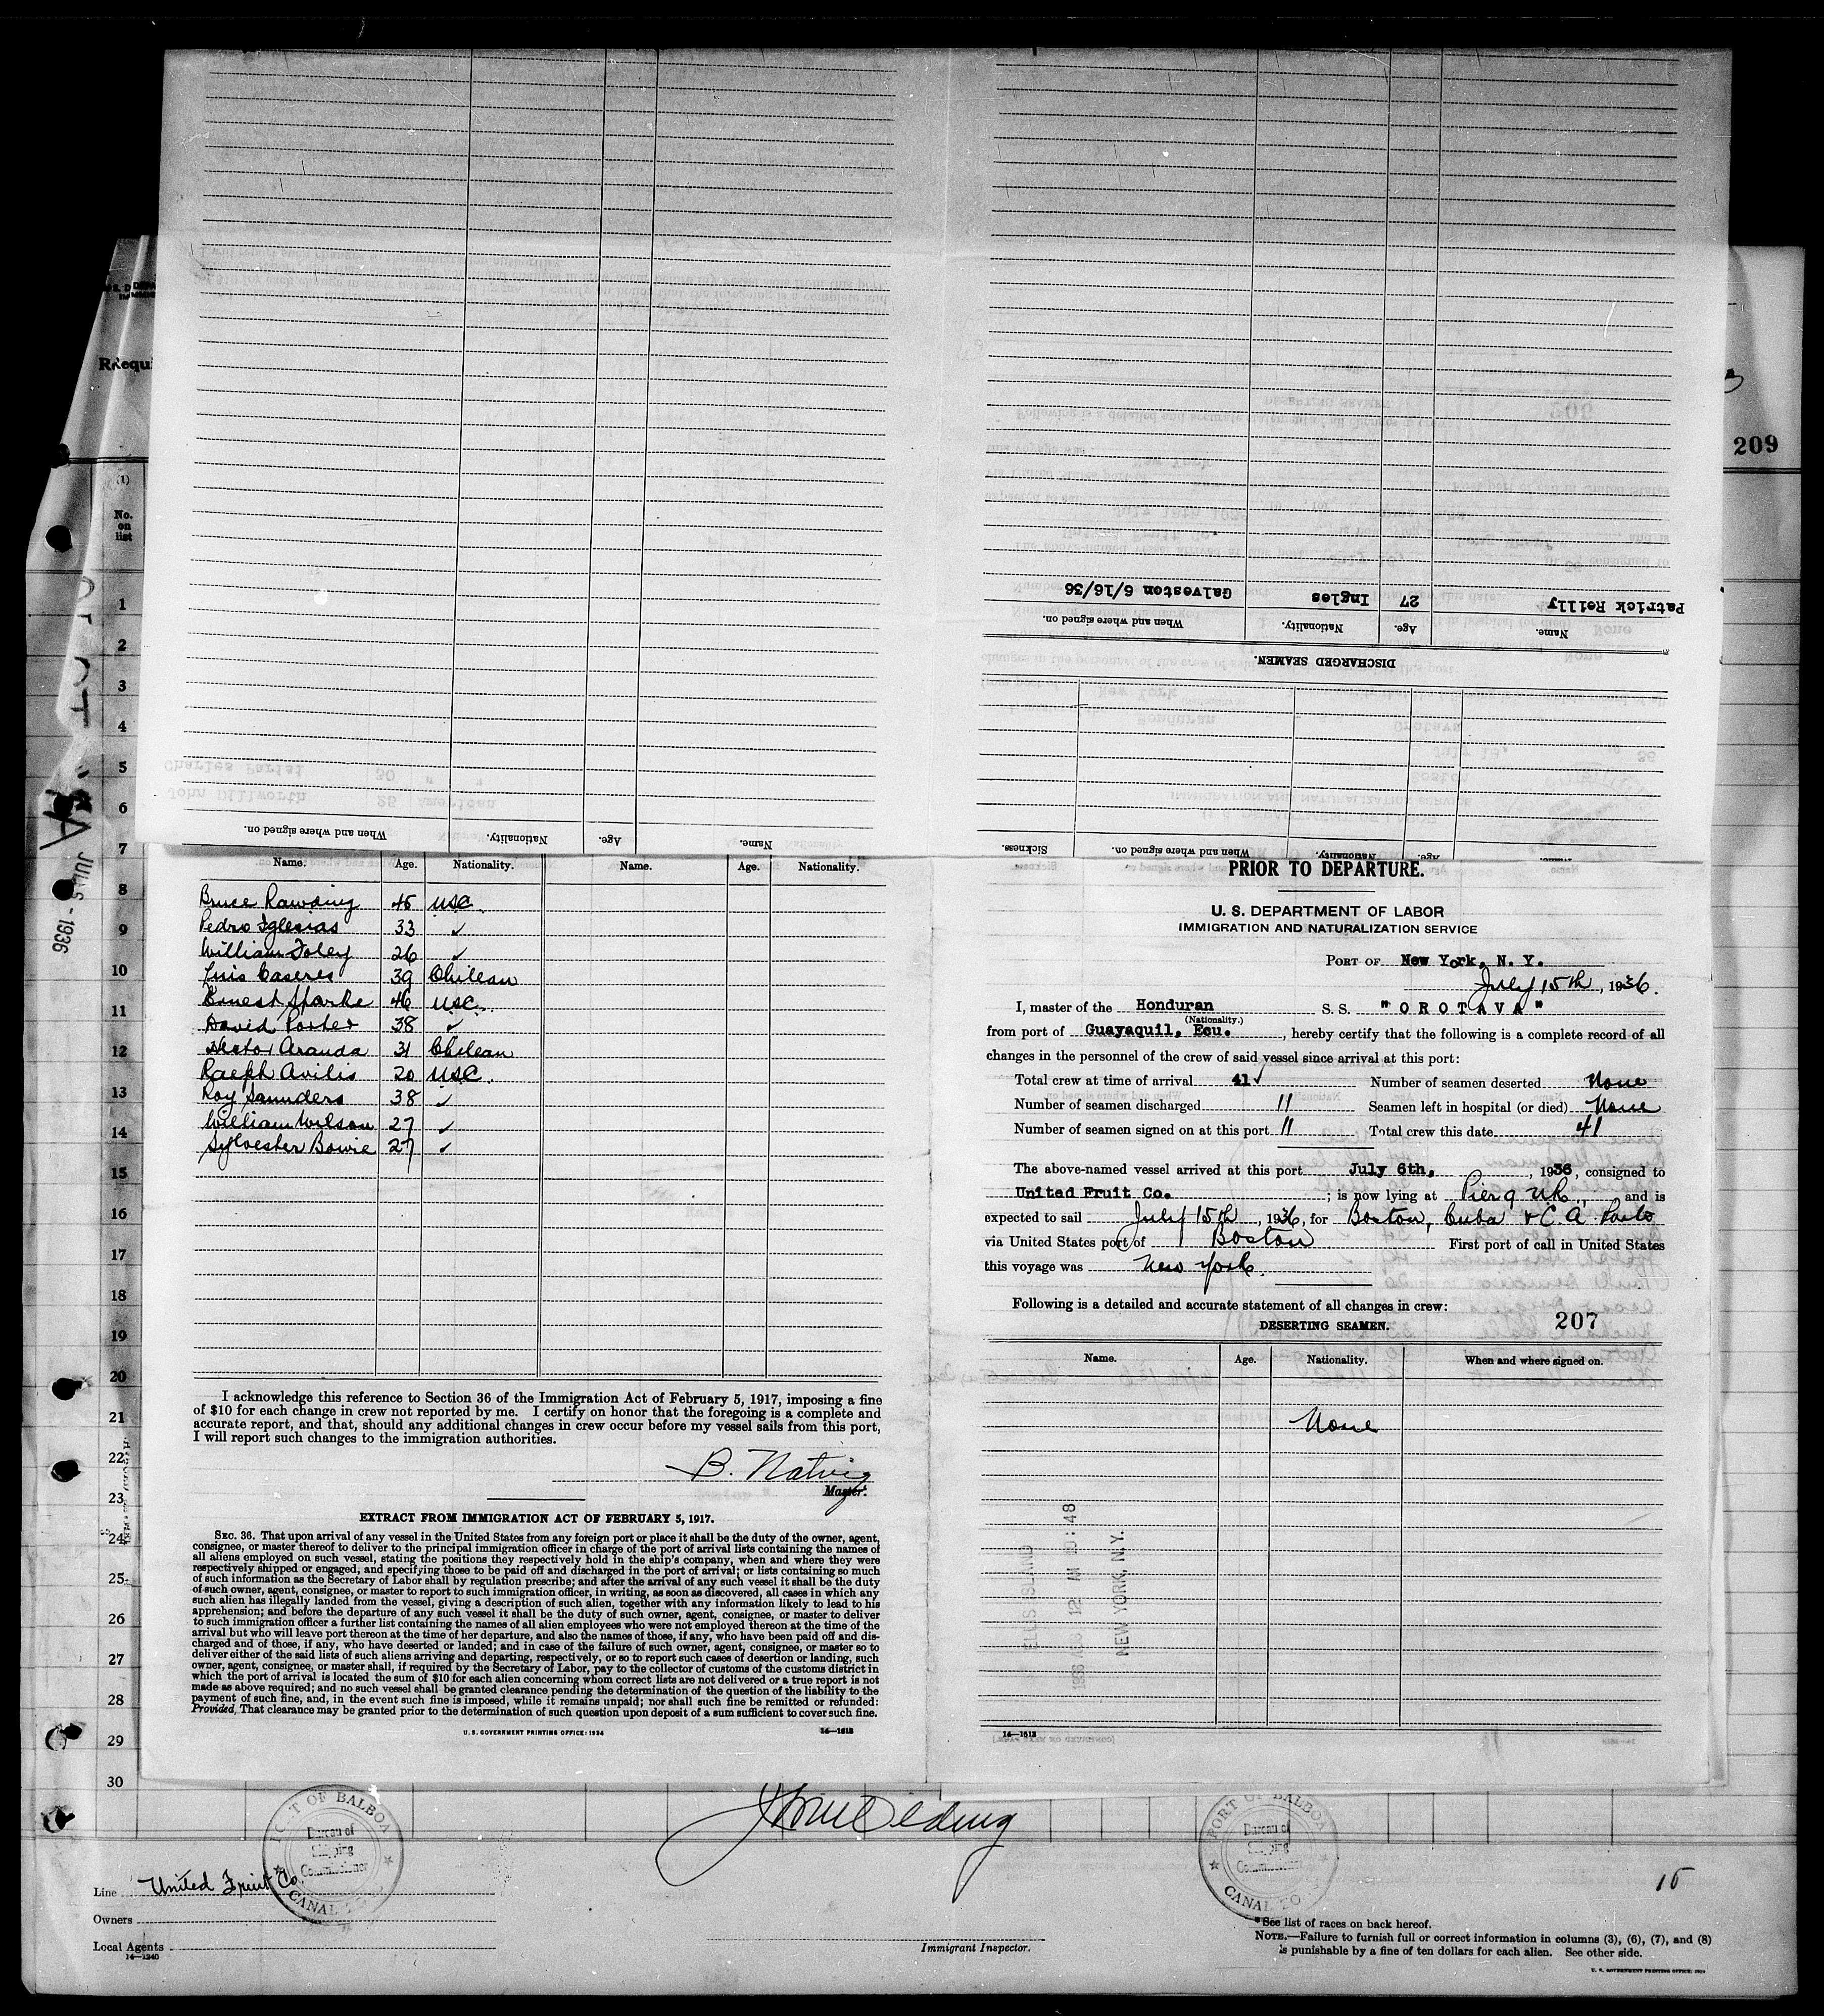 209
(1)
No.
on
list
1
2
3
4
5
6
7
8
9
10
11
12
13
14
15
16
17
18
19
20
21
22
23
24
25
26
27
28
29
30
JUL 6 - 1936
Patrick Reilly 27 Ingles Galveston 6/16/36
Name. Age. Nationality. When and where signed on.
DISCHARGED SEAMEN.
Name. Age. Nationality. When and where signed on.
Name. Age. Nationality. When and where signed on. Sickness.
Name. Age. Nationality. Name. Age. Nationality.
Bruce Rawding 45 USC
Pedro Iglesias 33 ✓
William Foley 26 ✓
Luis Caseres 39 Chilean
Ernest Sparke 46 USC.
David Porter 38 ✓
Hector Aranda 31 Chilean
Raeph Avilis 20 USC.
Roy Saunders 38 ✓
William Wilson 27 ✓
Sylvester Bowie 27 ✓
I acknowledge this reference to Section 36 of the Immigration Act of February 5, 1917, imposing a fine
of $10 for each change in crew not reported by me. I certify on honor that the foregoing is a complete and
accurate report, and that, should any additional changes in crew occur before my vessel sails from this port,
I will report such changes to the immigration authorities.
B. Natvig
Master.
EXTRACT FROM IMMIGRATION ACT OF FEBRUARY 5, 1917.
SEC. 36. That upon arrival of any vessel in the United States from any foreign port or place it shall be the duty of the owner, agent,
consignee, or master thereof to deliver to the principal immigration officer in charge of the port of arrival lists containing the names of
all aliens employed on such vessel, stating the positions they respectively hold in the ship's company, when and where they were
respectively shipped or engaged, and specifying those to be paid off and discharged in the port of arrival; or lists containing so much
of such information as the Secretary of Labor shall by regulation prescribe; and after the arrival of any such vessel it shall be the duty
of such owner, agent, consignee, or master to report to such immigration officer, in writing, as soon as discovered, all cases in which any
such alien has illegally landed from the vessel, giving a description of such alien, together with any information likely to lead to his
apprehension; and before the departure of any such vessel it shall be the duty of such owner, agent, consignee, or master to deliver
to such immigration officer a further list containing the names of all alien employees who were not employed thereon at the time of the
arrival but who will leave port thereon at the time of her departure, and also the names of those, if any, who have been paid off and dis-
charged and of those, if any, who have deserted or landed; and in case of the failure of such owner, agent, consignee, or master so to
deliver either of the said lists of such aliens arriving and departing, respectively, or so to report such cases of desertion or landing, such
owner, agent, consignee, or master shall, if required by the Secretary of Labor, pay to the collector of customs of the customs district in
which the port of arrival is located the sum of $10 for each alien concerning whom correct lists are not delivered or a true report is not
made as above required; and no such vessel shall be granted clearance pending the determination of the question of the liability to the
payment of such fine, and, in the event such fine is imposed, while it remains unpaid; nor shall such fine be remitted or refunded:
Provided, That clearance may be granted prior to the determination of such question upon deposit of a sum sufficient to cover such fine.
U. S. GOVERNMENT PRINTING OFFICE: 1934 14—1613
PRIOR TO DEPARTURE.
U. S. DEPARTMENT OF LABOR
IMMIGRATION AND NATURALIZATION SERVICE
PORT OF New York, N. Y.
July 15th, 1936.
I, master of the Honduran S. S. "OROTAVA"
(Nationality.)
from port of Guayaquil, Ecu., hereby certify that the following is a complete record of all
changes in the personnel of the crew of said vessel since arrival at this port:
Total crew at time of arrival 41 ✓ Number of seamen deserted None
Number of seamen discharged 11 Seamen left in hospital (or died) None
Number of seamen signed on at this port 11 Total crew this date 41
The above-named vessel arrived at this port July 6th, 1936, consigned to
United Fruit Co. ; is now lying at Pier 9 N.R., and is
expected to sail July 15th, 1936, for Boston, Cuba & C. A. Ports
via United States port of Boston First port of call in United States
this voyage was New York.
Following is a detailed and accurate statement of all changes in crew:
207
DESERTING SEAMEN.
Name. Age. Nationality. When and where signed on.
None
ELLIS ISLAND
NEW YORK, N.Y.
14—1613
PORT OF BALBOA
Bureau of
Shipping
Commissioner
CANAL ZO
PORT OF BALBOA
Bureau of
Shipping
Commissioner
CANAL ZO
Line United Fruit Co.
Owners
Local Agents
14—1240
Immigrant Inspector.
15
*See list of races on back hereof.
NOTE.—Failure to furnish full or correct information in columns (3), (6), (7), and (8)
is punishable by a fine of ten dollars for each alien. See other side.